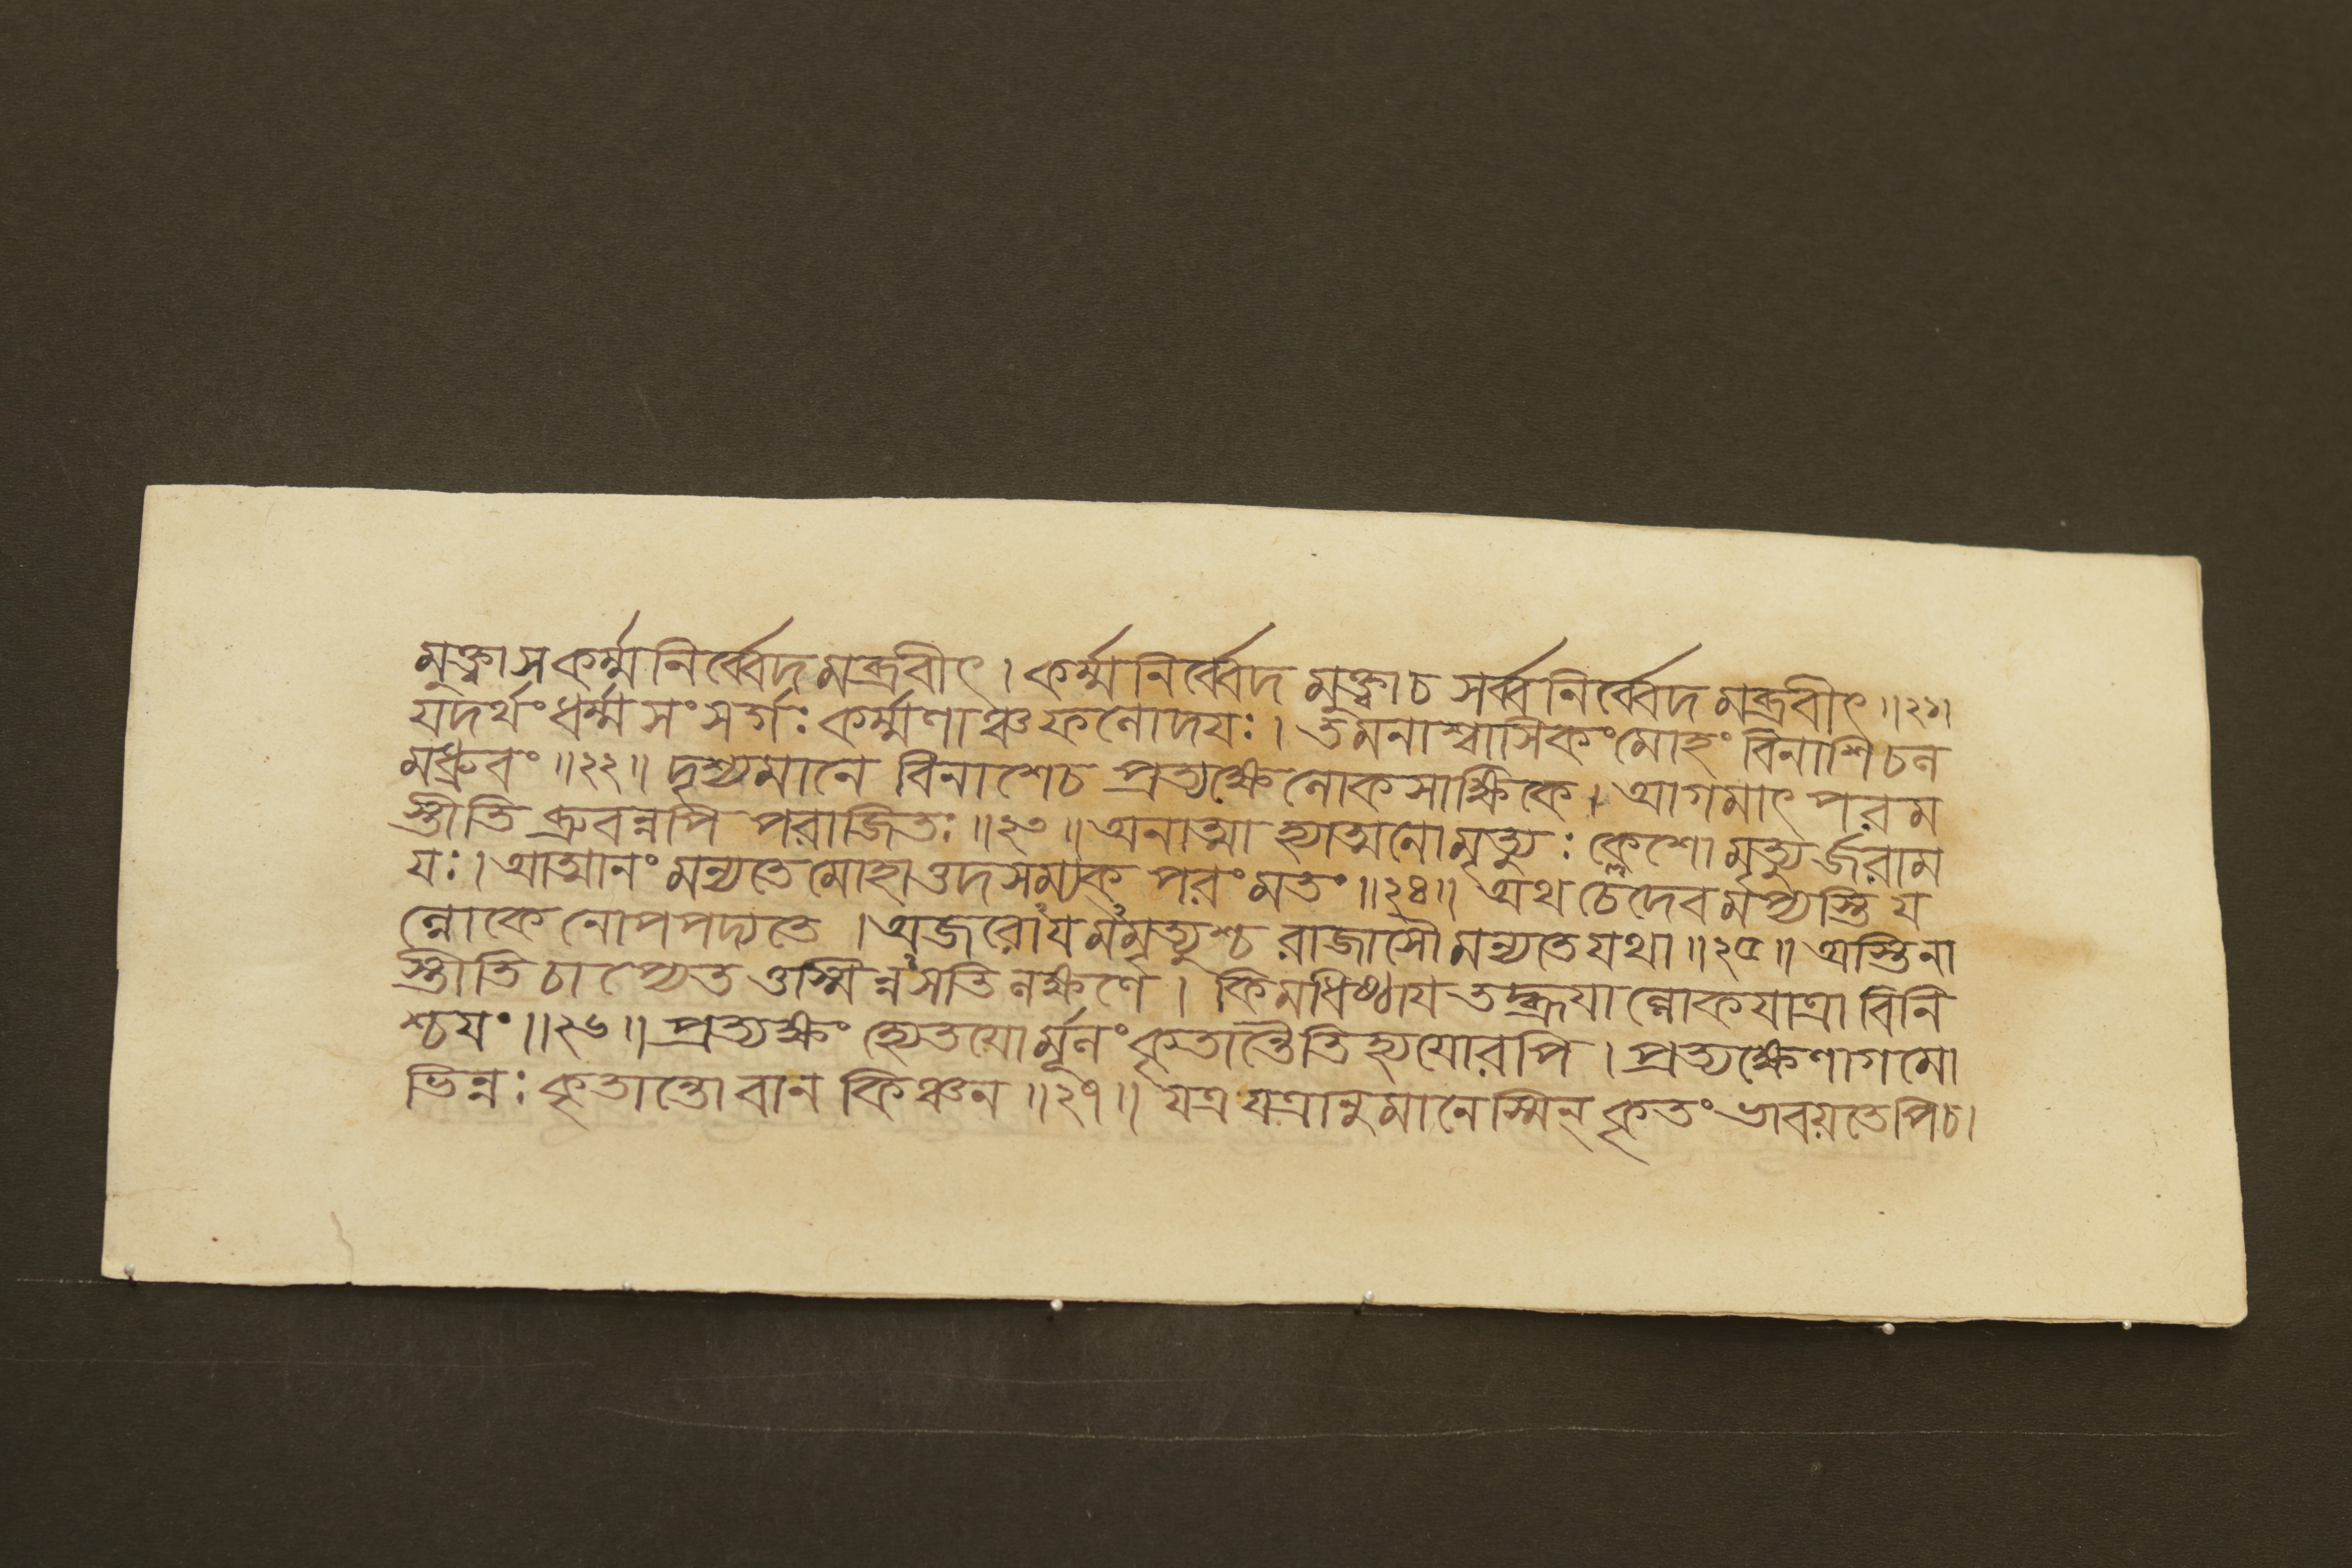 মুক্ত্বা স কর্ম্মনির্ব্বেদমব্রবীৎ । কর্ম্মনির্ব্বেদমুক্ত্বা চ সর্ব্বনির্ব্বেদমব্রবীৎ ॥২১॥
যদর্থং ধর্ম্মসংসর্গঃ কর্ম্মণাঞ্চ ফলোদযঃ । তমনাশ্বাসিকং মোহং বিনাশি চল
মধ্রুবং ॥২২॥ দৃশ্যমানে বিনাশে চ প্রত্যক্ষে লোকসাক্ষিকে । আগমাৎ পরম
স্তীতি ব্রুবন্নপি পরাজিতঃ ॥২৩॥ অনাত্মা হ্যাত্মনো মৃত্যুঃ ক্লেশো মৃত্যুর্জরাম
যঃ । আত্মানং মন্যতে মোহাত্তদসম্যক্ পরং মতং ॥২৪॥ অথ চেদেবমপ্যস্তি য
ল্লোকে নোপপদ্যতে । অজরোঽযমমৃত্যুশ্চ রাজাসৌ মন্যতে যথা ॥২৫॥ অস্তি না
স্তীতি চাপ্যেতত্তস্মিন্নসতি লক্ষণে । কিমধিষ্ঠায তদ্ব্রূযাল্লোকযাত্রাবিনি
শ্চযং ॥২৬॥ প্রত্যক্ষং হ্যেতযোর্মূলং কৃতান্তৈতিহ্যযোরপি । প্রত্যক্ষেণাগমো
ভিন্নঃ কৃতান্তো বা ন কিঞ্চন ॥২৭॥ যত্র যত্রানুমানেস্মিন্ কৃতং ভাবয়তেপি চ ।